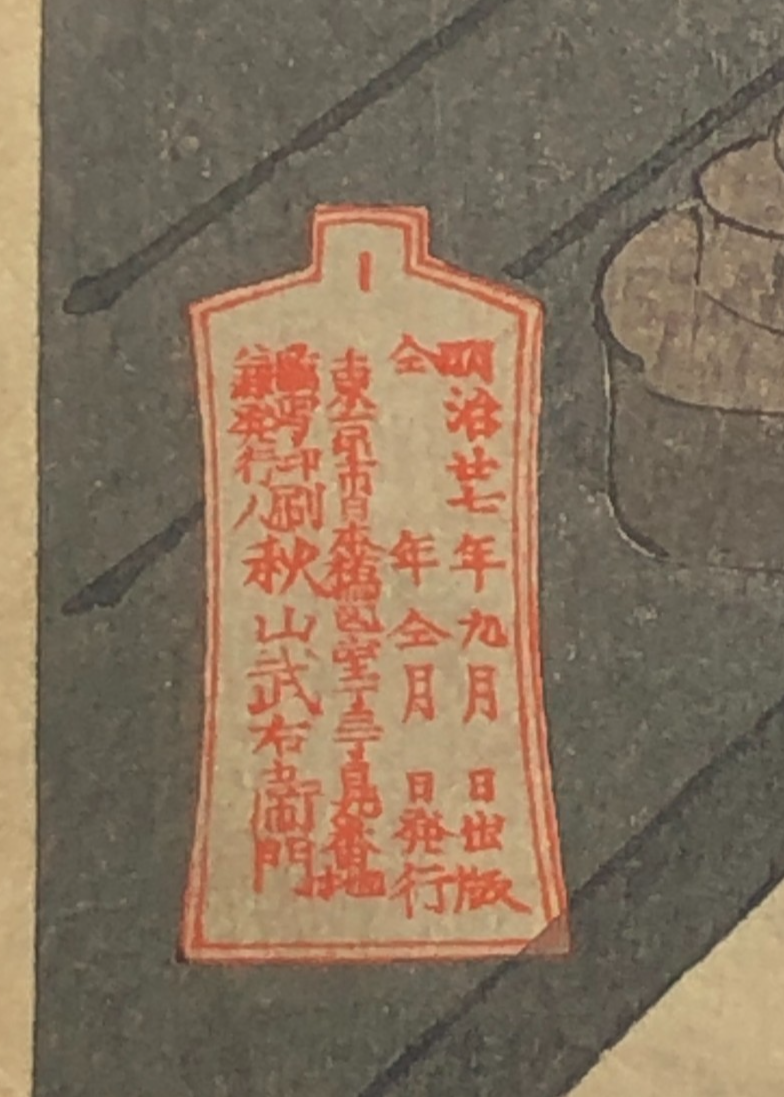 明治廿七年九月 日出版
仝 年仝月 日発行
東京市日本橋區室町三丁目九番地
臨写印刷
兼発行人
秋山武右衛門